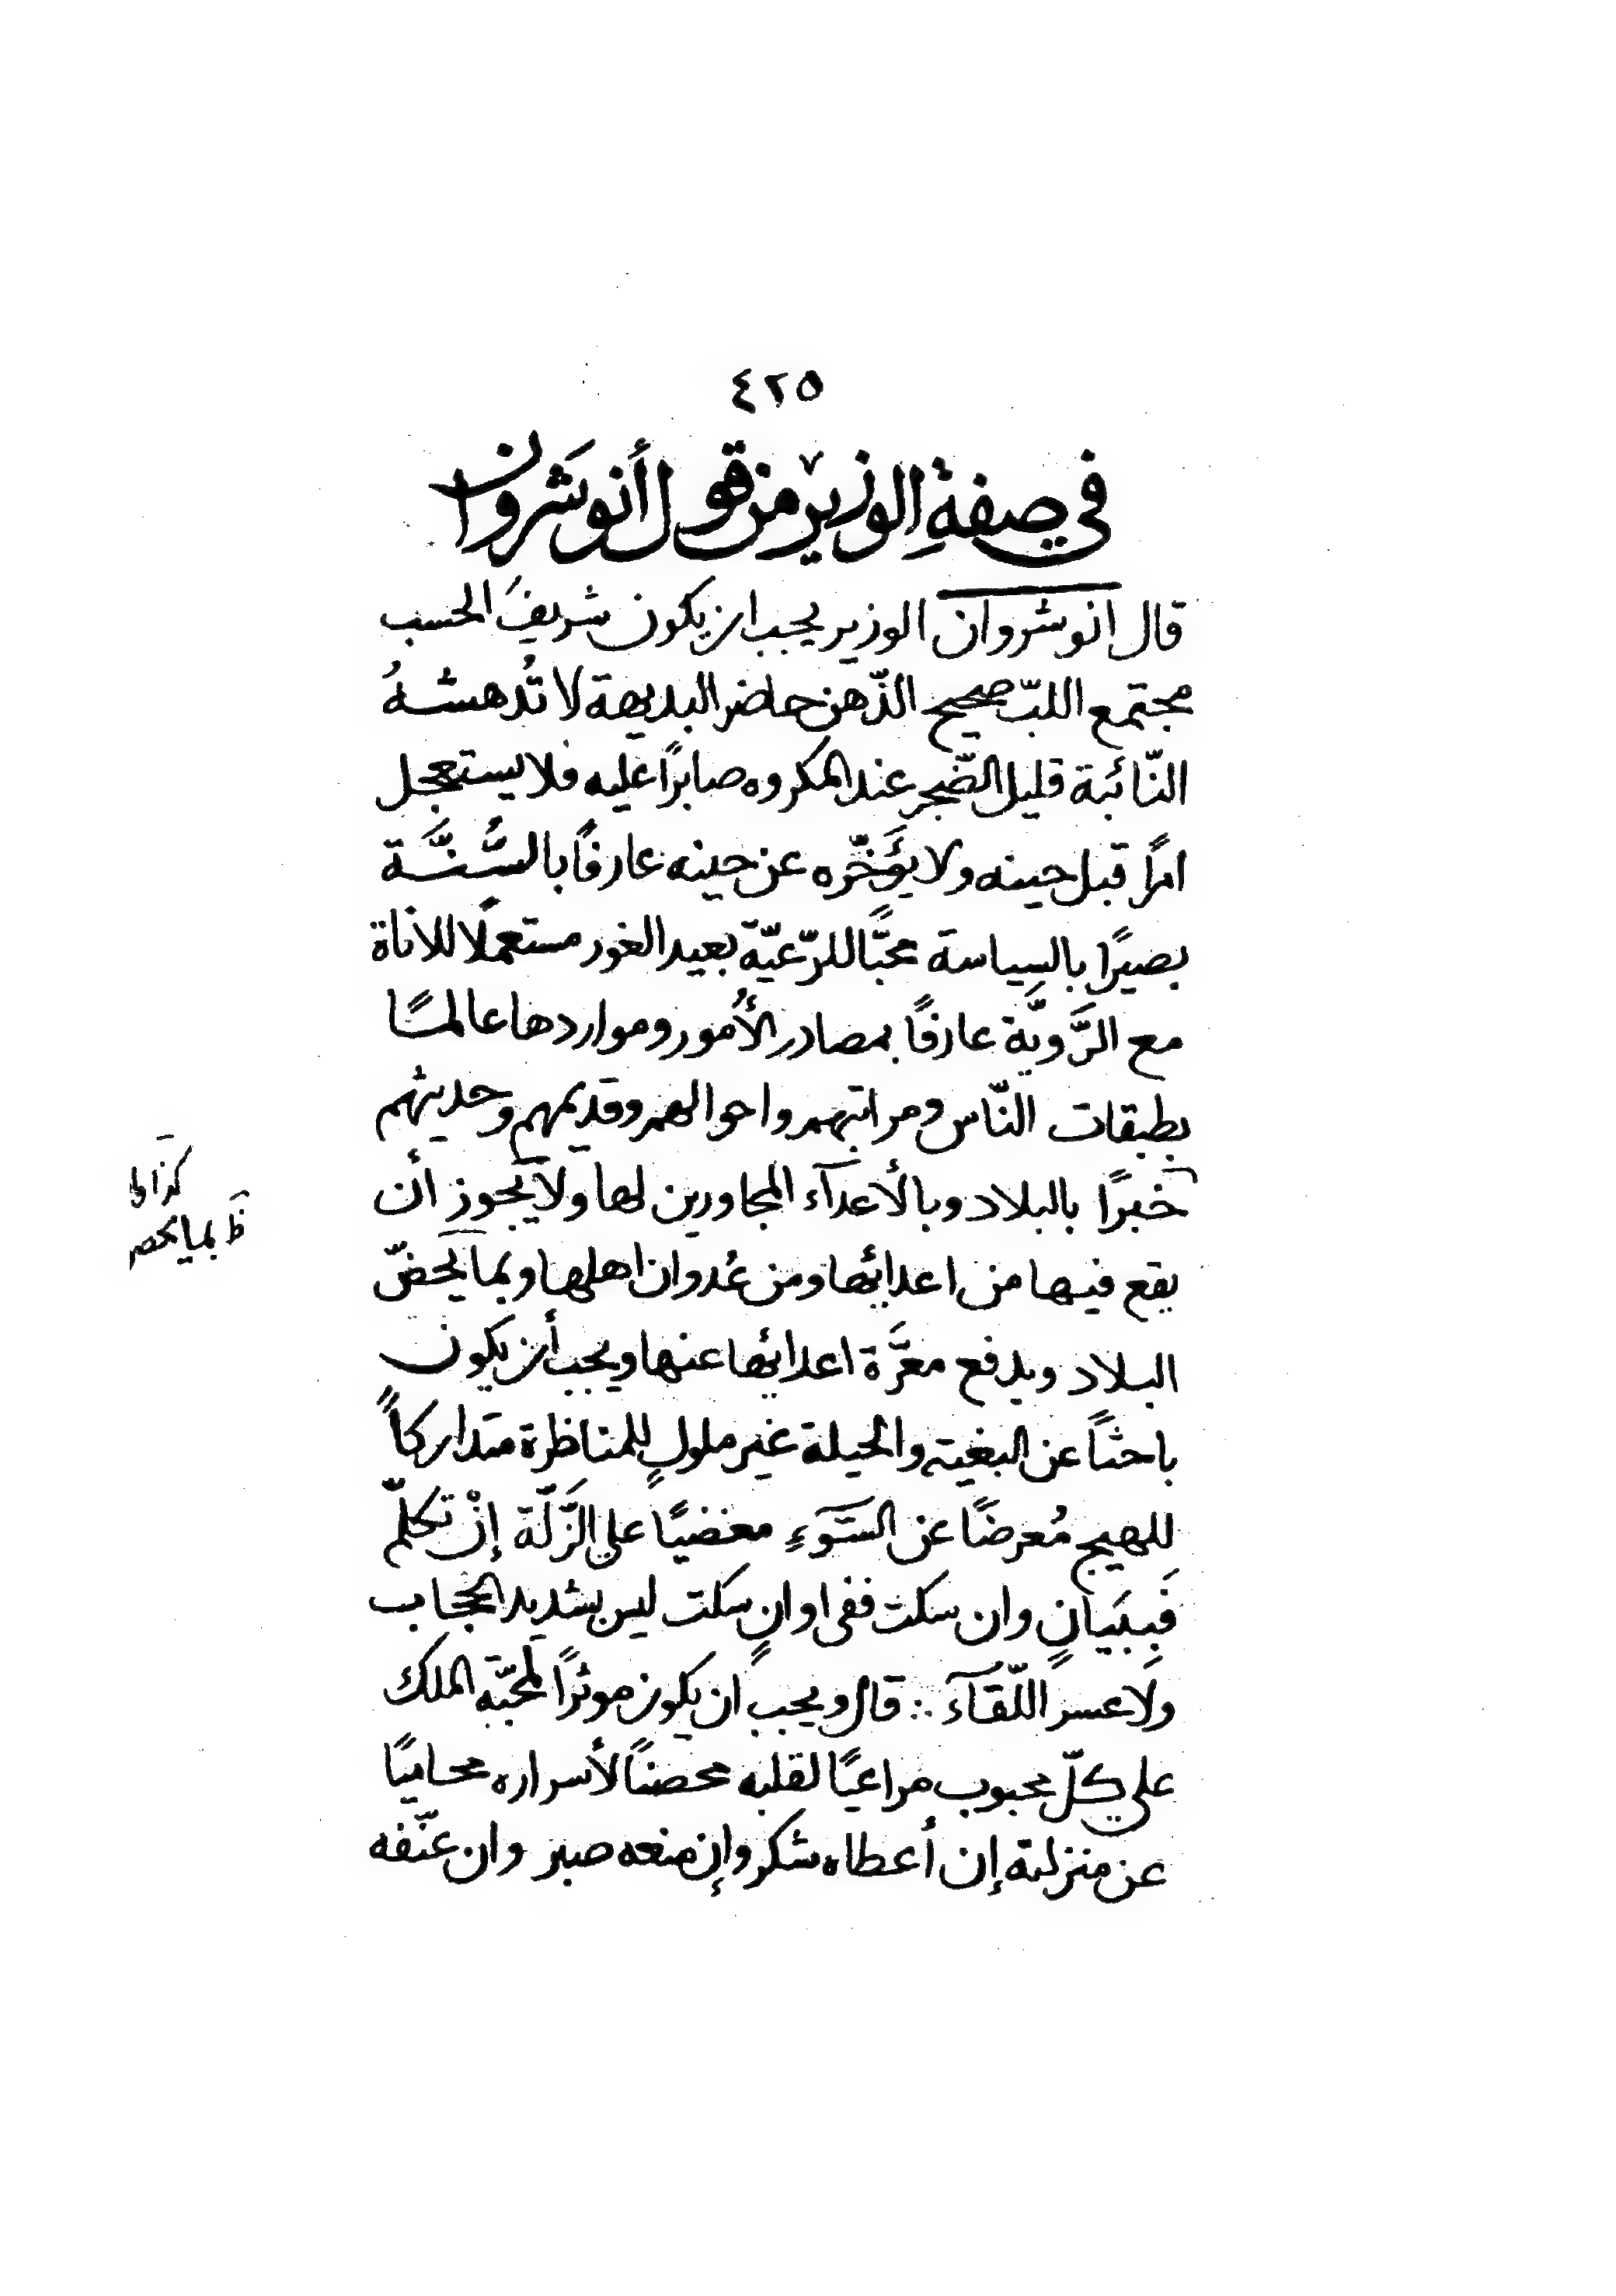 ٤٢٥
في صفةِ الوزير من قول أنوشَروان
قال انوشروان الوزير يجب ان يكون شريفَ الحسب
مجتمع اللبّ صحيح الذّهن حاضر البديهة لا تُدهشهُ
النّائبة قليل الضّجر عند المكروه صابرًا عليه فلا يستعجل
امرًا قبل حينه ولا يؤَخّره عن حينه عارفًا بالسُّنَّة
بصيرًا بالسِياسة محبًّا للرّعيّة بعيد الغور مستعملًا للاناة
مع الرَّويَّة عارفًا بمصادر الأُمور ومواردها عالمًا
بطبقات النّاس ومراتبهم واحوالهم وقديمهم وحديثهم
خبرًا بالبلاد وبالأعدآء المجاورين لها ولا يجوز أن
يقع فيها من اعدائها ومن عُدوان اهلها وبما يحضّ
البلاد ويدفع معرَّة اعدائها عنها ويجب أن يكون
باحثاً عن البغيته والحيلة غير ملولٍ للمناظرة متداركاً
للهيج مُعرضًا عن السَّوءِ مغضيًا علي الزَّلّة إنْ تكلّم
فَبِبَيَانٍ وان سكت ففى اوانٍ سكت ليس بشديد الحجاب
ولا عسرًا اللّقآءَ ∴ قال ويجب ان يكون موثرًا لمحبّة الملك
علي كلّ محبوب مراعيًا لقلبه محصناً لأسراره محاميًا
عن منزلته إن أعطاه شكر وإن منعه صبر وان عنّفه
كذا
ظَ بما يحصر